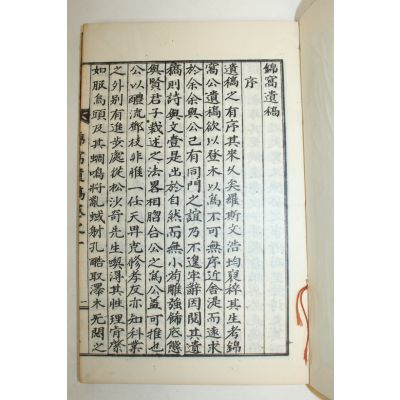 錦窩遺稿
序
遺稿之有序其來久矣羅斯文浩均裒稡其生考錦
窩公遺稿欲以登木以爲不可無序近舍湜而速求
於余余與公已有同門之誼乃不遑牢辭因閱其遺
稿則詩與文壹是出於自然而無小苟雕強飾底態
與賢君子載述之法畧相脗合公之爲公益可推也
公以醴流鄧枝非惟一任天畀克修孝友亦知科業
之外別有進步處從松沙奇先生喫得其性理肯綮
如服烏頭及其蜩鳴將亂蜮射孔酷取澤木无悶之
錦窩遺稿卷之一